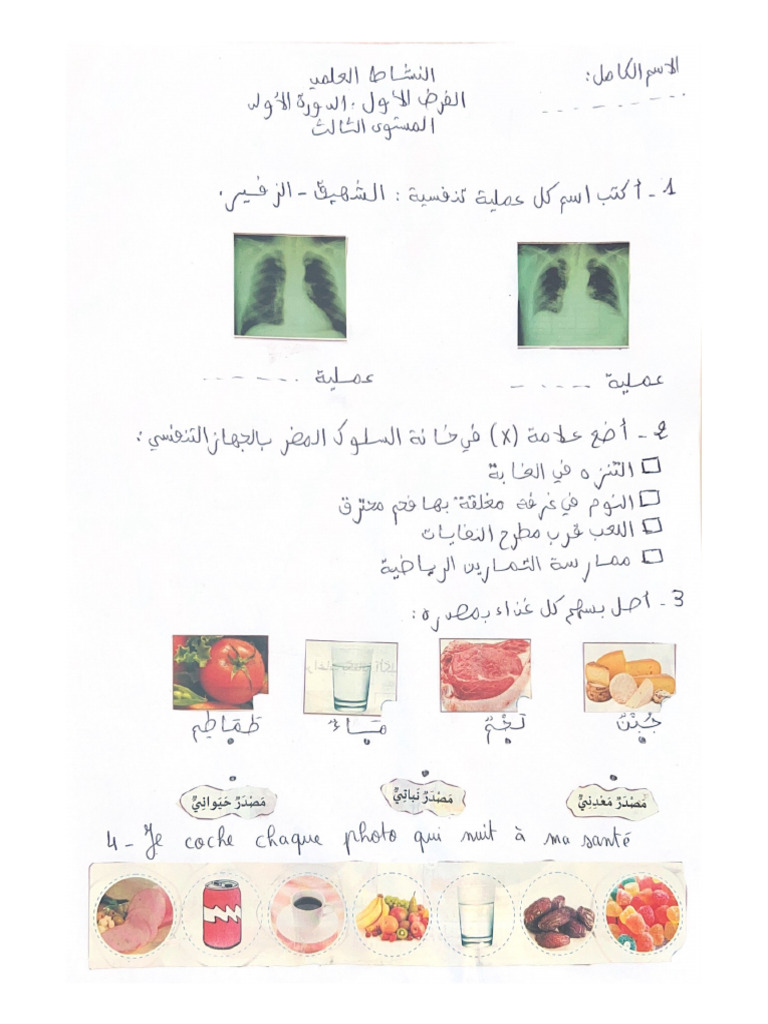 الاسم الكامل:
النشاط العلمي
الفرض الأول: الدورة الأولى
المستوى الثالث
1- أكتب اسم كل عملية تنفسية: الشهيق - الزفير.
عملية
عملية
2- أضع علامة (x) في خانة السلوك المضر بالجهاز التنفسي:
التنزه في الغابة
النوم في غرفة مغلقة بها فحم محترق
اللعب قرب مطرح النفايات
ممارسة التمارين الرياضية
3- أصل بسهم كل غذاء بمصدره:
جُبْنٌ لَحْمٌ مَاءٌ طَمَاطِم
مَصْدَرٌ مَعْدِنِيٌّ مَصْدَرٌ نَباتِيٌّ مَصْدَرٌ حَيَوانِيٌّ
4- Je coche chaque photo qui nuit à ma santé